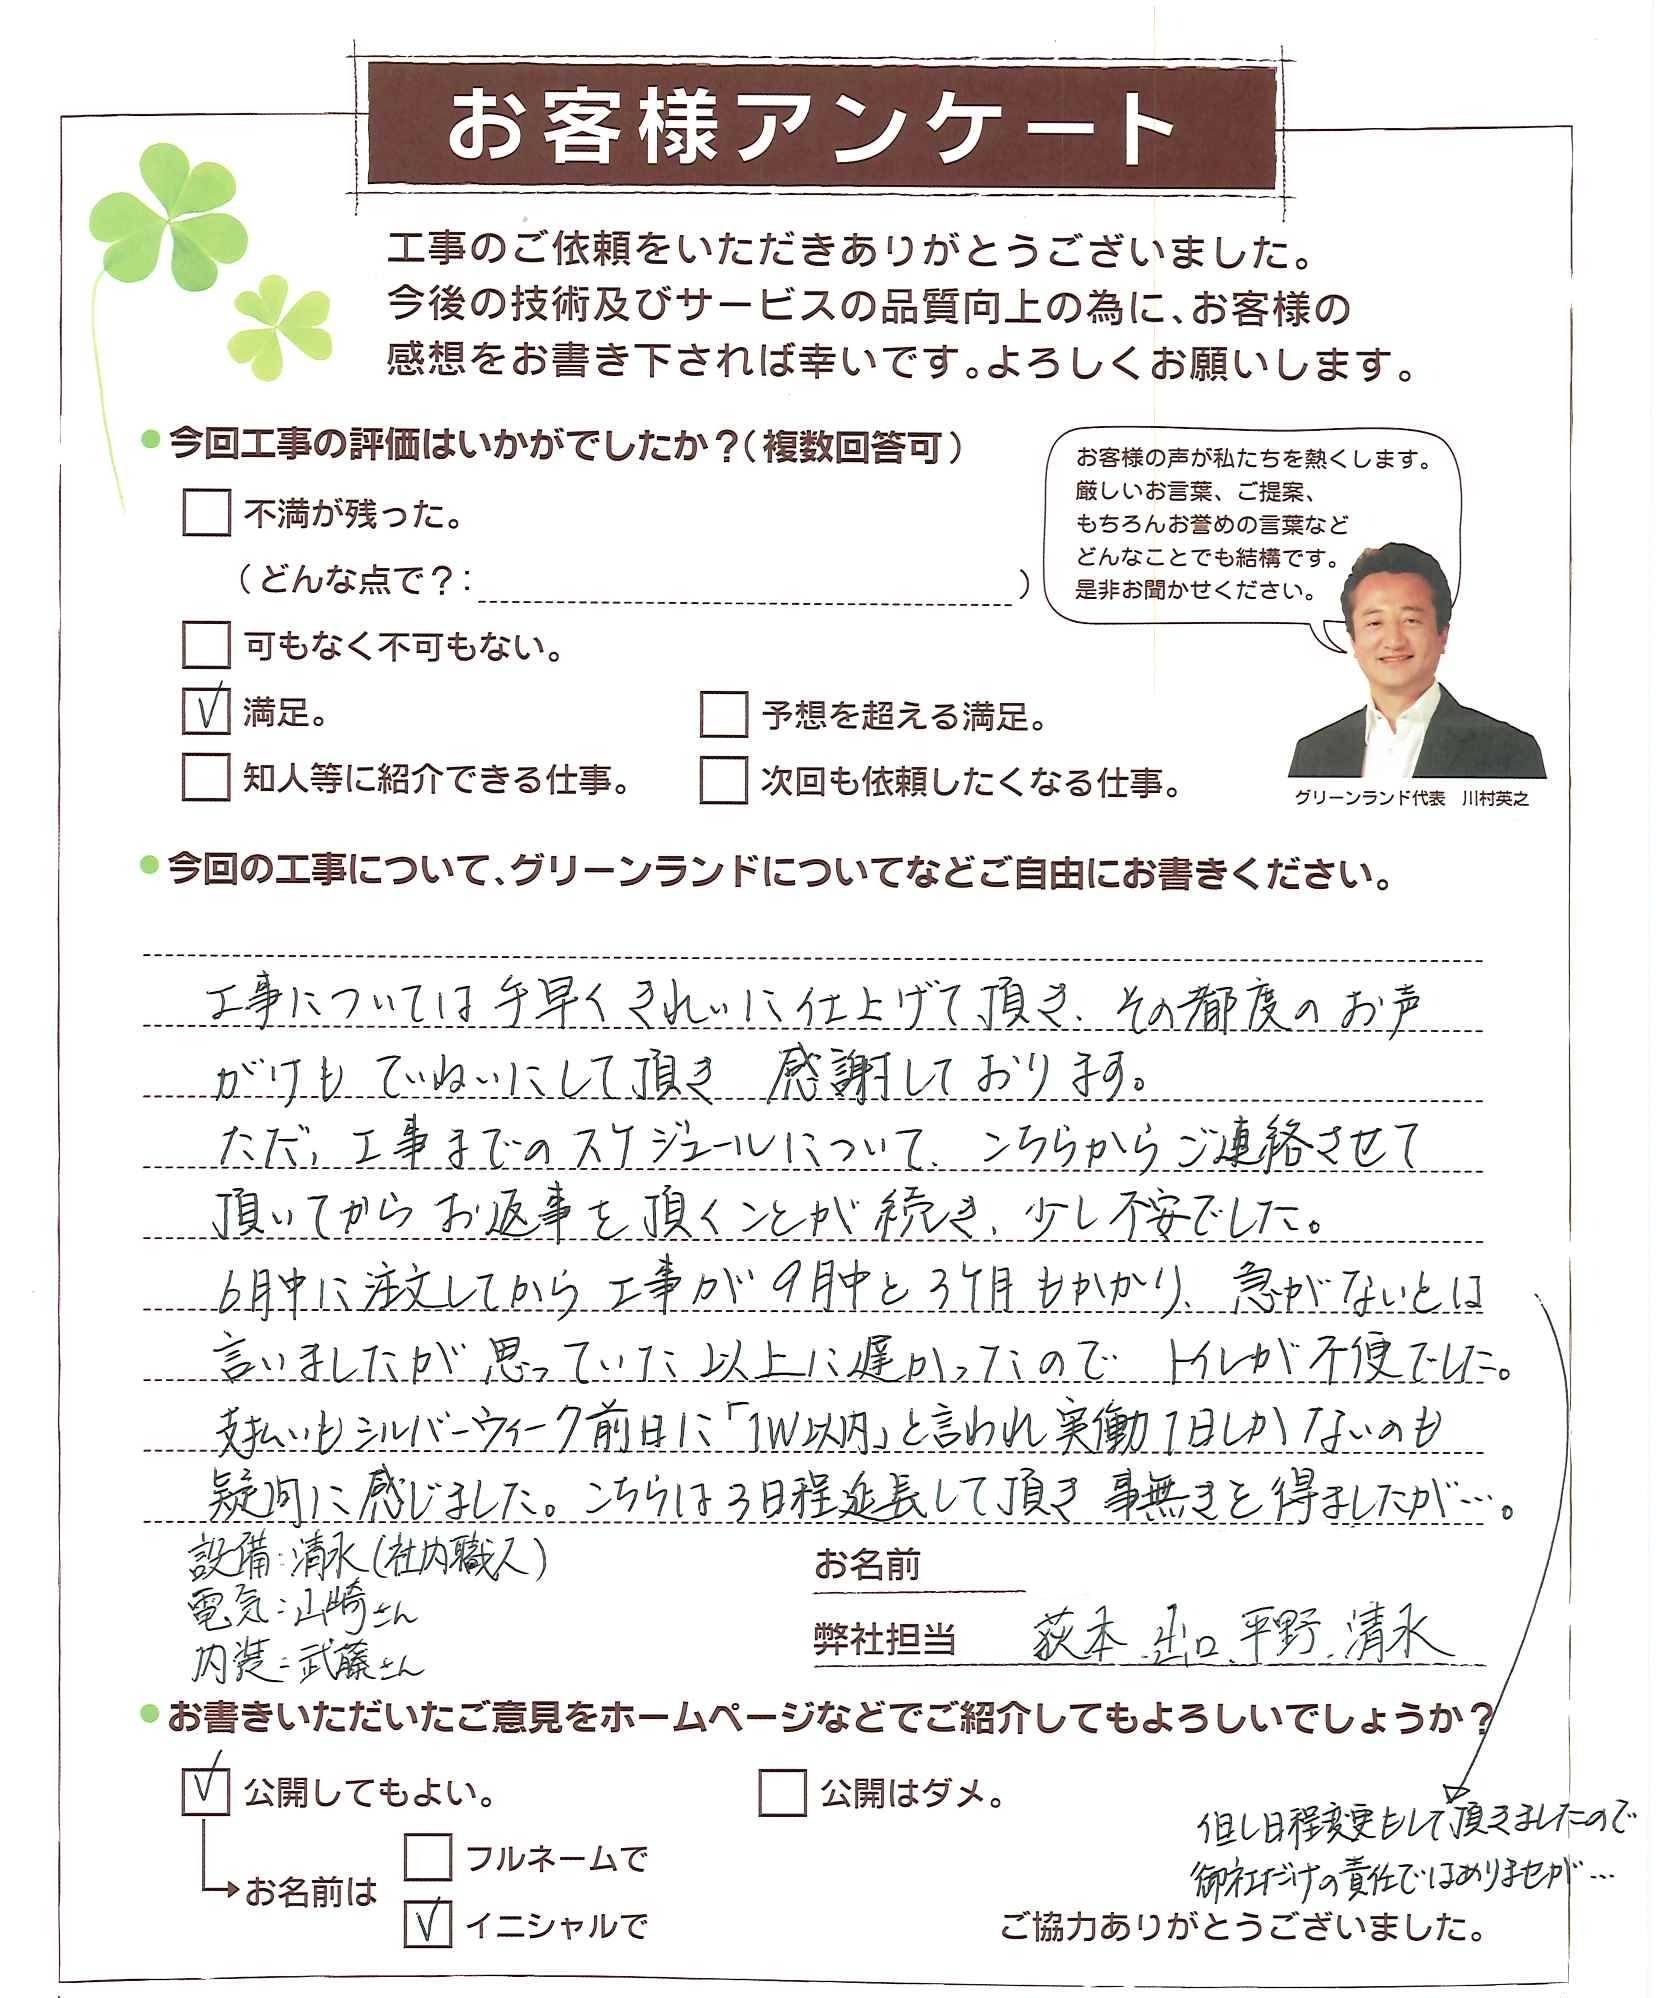 お客様アンケート
工事のご依頼をいただきありがとうございました。
今後の技術及びサービスの品質向上の為に、お客様の
感想をお書き下されば幸いです。よろしくお願いします。
●今回工事の評価はいかがでしたか？（複数回答可）
不満が残った。
（どんな点で？：　　　）
可もなく不可もない。
✓満足。
予想を超える満足。
知人等に紹介できる仕事。
次回も依頼したくなる仕事。
お客様の声が私たちを熱くします。
厳しいお言葉、ご提案、
もちろんお誉めの言葉など
どんなことでも結構です。
是非お聞かせください。
グリーンランド代表　川村英之
●今回の工事について、グリーンランドについてなどご自由にお書きください。
工事については手早くきれいに仕上げて頂き、その都度のお声
がけもていねいにして頂き　感謝しております。
ただ、工事までのスケジュールについて、こちらからご連絡させて
頂いてからお返事を頂くことが続き、少し不安でした。
6月中に注文してから工事が9月中と3ケ月もかかり、急がないとは
言いましたが思っていた以上に遅かったので　トイレが不便でした。
支払いもシルバーウィーク前日に「1W以内」と言われ実働1日しかないのも
疑問に感じました。こちらは3日程延長して頂き事無きを得ましたが…。
設備：清水（社内職人）
電気：山崎さん
内装：武藤さん
お名前
弊社担当　荻本、山口、平野、清水
●お書きいただいたご意見をホームページなどでご紹介してもよろしいでしょうか？
✓公開してもよい。
公開はダメ。
但し日程変更もして頂きましたので
御社だけの責任ではありませが…
お名前は
フルネームで
✓イニシャルで
ご協力ありがとうございました。